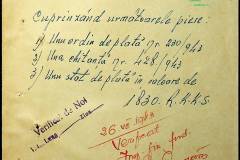 Cuprinzând următoarele piese:
1) Un ordin de plată nr. 280/943
2) Una chitanță nr. 428/943
3) Un stat de plată în valoare de
1830. R.K.K.S.
Verificat de Noi
26 VII 1943
Verificat